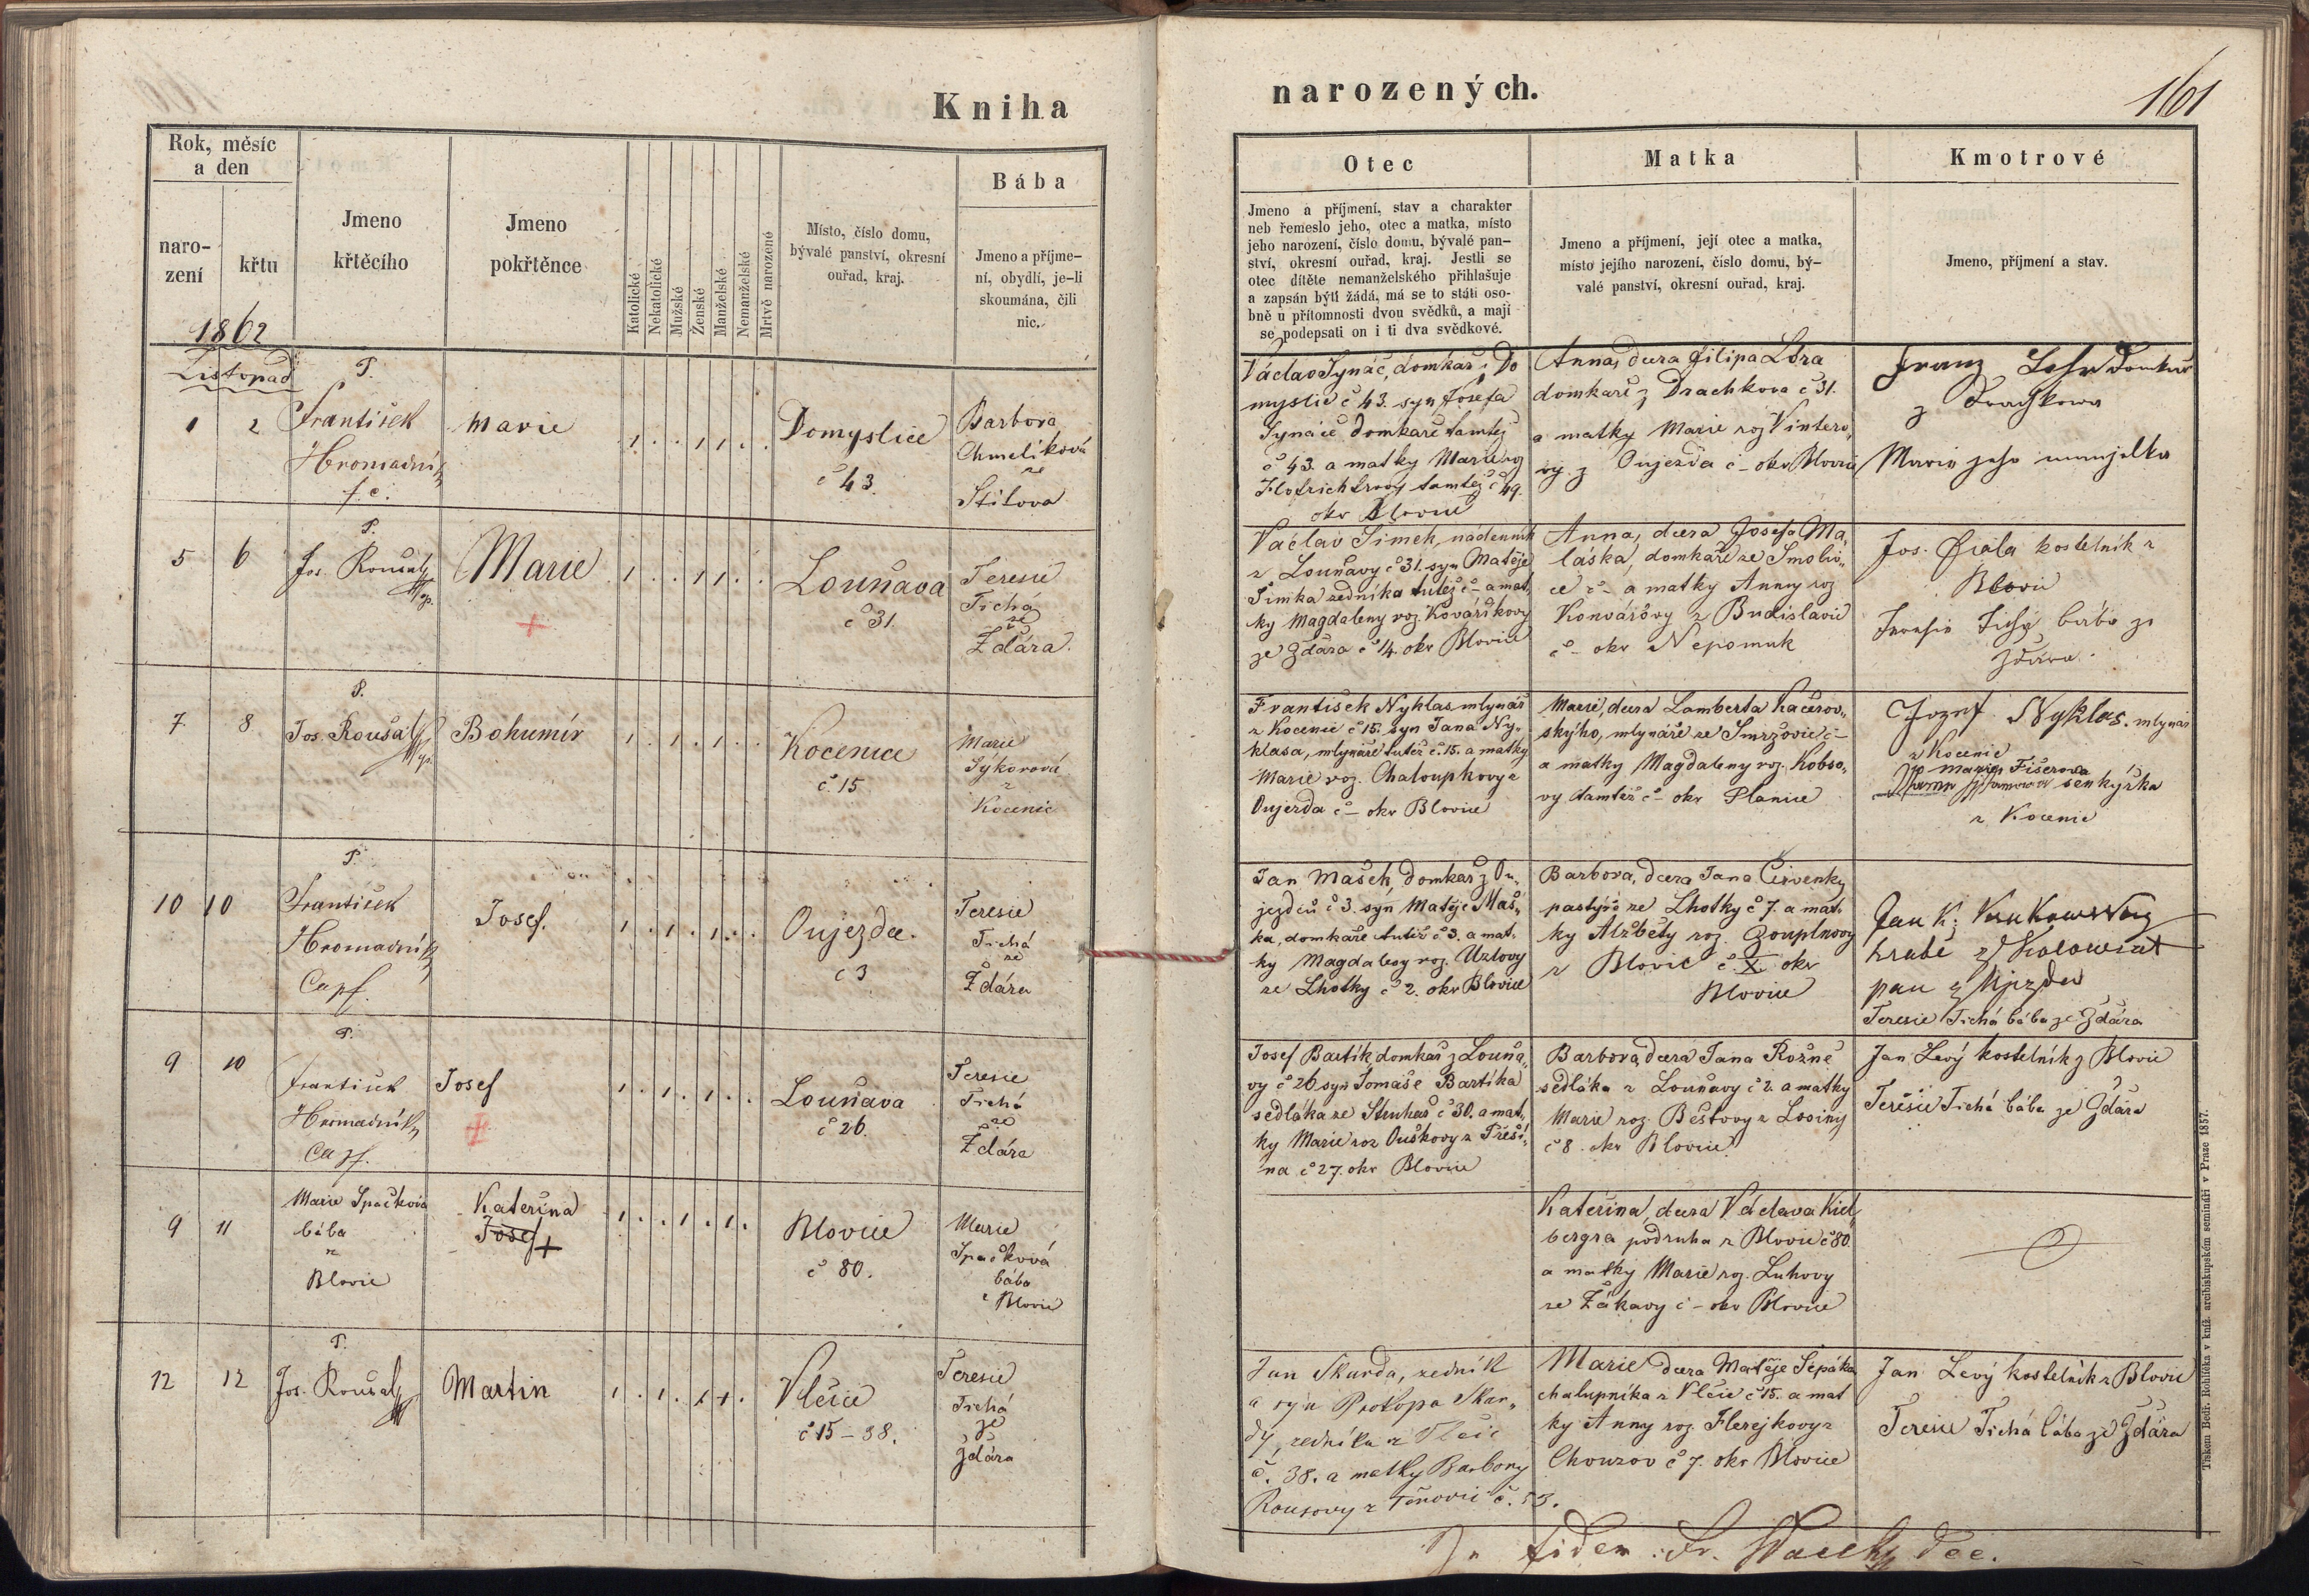 Kniha
narozených.
161
Rok, měsíc
a den
naro-
zení
křtu
Jmeno
křtěcího
Jmeno
pokřtěnce
Katolické
Nekatolické
Mužské
Ženské
Manželské
Nemanželské
Mrtvě narozené
Místo, číslo domu,
bývalé panství, okresní
ouřad, kraj.
Bába
Jmeno a příjme-
ní, obydlí, je-li
skoumána, čili
nic.
Otec
Jmeno a příjmení, stav a charakter
neb řemeslo jeho, otec a matka, místo
jeho narození, číslo domu, bývalé pan-
ství, okresní ouřad, kraj. Jestli se
otec dítěte nemanželského přihlašuje
a zapsán býti žádá, má se to státi oso-
bně u přítomnosti dvou svědků, a mají
se podepsati on i ti dva svědkové.
Matka
Jmeno a příjmení, její otec a matka,
místo jejího narození, číslo domu, bý-
valé panství, okresní ouřad, kraj.
Kmotrové
Jmeno, příjmení a stav.
1862
Listopad
1 2
P.
František
Hromadník
Marie
Domyslice
č 43.
Barbora
Chmelíková
ze
Štítova
Václav Synáč, domkař z Do
myslic č 43. syn Josefa
Synáče domkaře tamtéž
č 43. a matky Marie roz
tamtéž č 49.
okr Blovice
Anna, dcera Filipa Lora
domkaře z Drachkova č 31.
a matky Marie roz Vintero„
vy z Oujezda č – okr Blovice
Franz domkař
z
Maria jeho manželka
5 6
P.
Jos. Roušal
Marie
Louňava
č 31.
Teresie
Tichá
ze
Ždára.
Václav Šimek, nádenník
z Louňavy č 31. syn Matěje
Šimka zedníka tutéž č – a mat„
ky Magdaleny roz. Kovaříkovy
ze Ždára č 14. okr Blovice
Anna, dcera Josefa Ma„
láska, domkaře ze Smolio„
ce č – a matky Anny roz
Konvářovy z Budislavic
č – okr Nepomuk
Jos. Fiala kostelník z
Blovic
bába ze
Ždára.
7 8
P.
Jos. Roušal
Bohumír
Kocenice
č. 15
Marie
Sýkorová
z
Kocenic
František Nyklas mlynář
z Kocenic č 15. syn Jana Ny„
klasa, mlynáře tutéž č. 15. a matky
Marie roz. Chaloupkovy z
Oujezda č – okr Blovice
Marie, dcera Lamberta Kačerov„
skýho, mlynáře ze Smržovic č –
a matky Magdaleny roz. Kobso„
vy tamtéž č – okr Planice
Jozef Nyklas. mlynář
z Kocenic
Marie Fišerova
senkýřka
z Kocenic
10 10
P.
František
Hromadník
Cap.
Josef.
Oujezdec.
č 3
Teresie
Tichá
ze
Ždára
Jan Mašek, domkař z Ou„
jezdců č 3. syn Matěje Maš„
ka, domkaře tutéž č 3. a mat„
ky Magdaleny roz. Uzlovy
ze Lhotky č 2. okr Blovice
Barbora, dcera Jana Červenky
pastýře ze Lhotky č 7. a mat„
ky Alžběty roz. Zouplnovy
z Blovic č X. okr
Blovice
Jan
hrabě z Kolowrat
pan z Ujezdu
Teresie Tichá bába ze Ždára
9 10
P.
František
Hromadník
Cap.
Josef
Louňava
č 26.
Teresie
Tichá
ze
Ždára
Josef Bartík domkař z Louňa„
vy č 26 syn Tomáše Bartíka
sedláka ze Struhař č 30. a mat„
ky Marie roz Ouškovy z Přeši„
na č 27. okr Blovice
Barbora, dcera Jana Rožne
sedláka z Louňavy č 2. a matky
Marie roz. Beštovy z Losiny
č 8. okr Blovice
Jan Levý kostelník z Blovic
Teresie Tichá bába ze Ždára
9 11
Marie Spačková
bába
z
Blovic
Kateřina
Josef +
Blovice
č 80.
Marie
Spačková
bába
z Blovic
Kateřina, dcera Václava Kiel„
bergra podruha z Blovic č 80.
a matky Marie roz. Luhovy
ze Žákavy č – okr Blovice
12 12
P.
Jos. Roušal
Martin
Vlčice
č 15 – 38.
Teresie
Tichá
ze
Ždára
Jan Skurda, zedník
a syn Prokopa Skur„
dy, zedníka z Vlčic
č. 38. a matky Barbory
Rousovy z Těnovic č. 53.
Marie dcera Matěje Sepáka
chalupníka z Vlčic č 15. a mat
ky Anny roz. Flerejkovy z
Chouzov č 7. okr Blovice
Jan Levý kostelník z Blovic
Teresie Tichá bába ze Ždára
In fidem: Fr. Dec.
Tiskem Bedř. Rohlíčka v kníž. arcibiskupském semináři v Praze 1857.